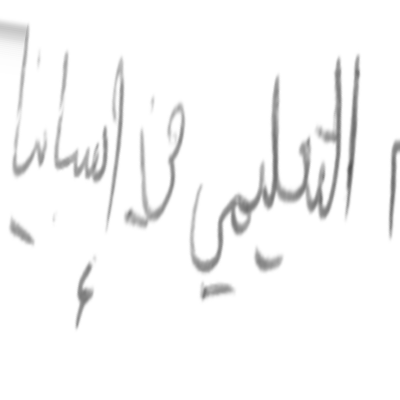 التعليمي في إسبانيا